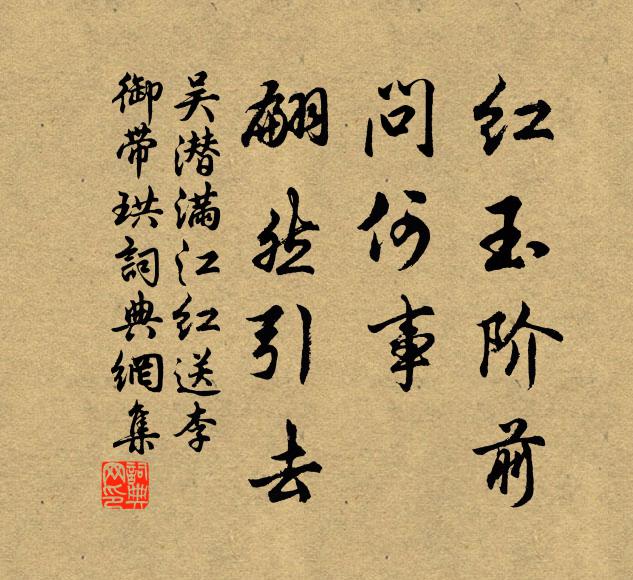 红玉阶前
问何事
翩然引去
吴潜满江红送李
御带珙词典網集
詞典
网印